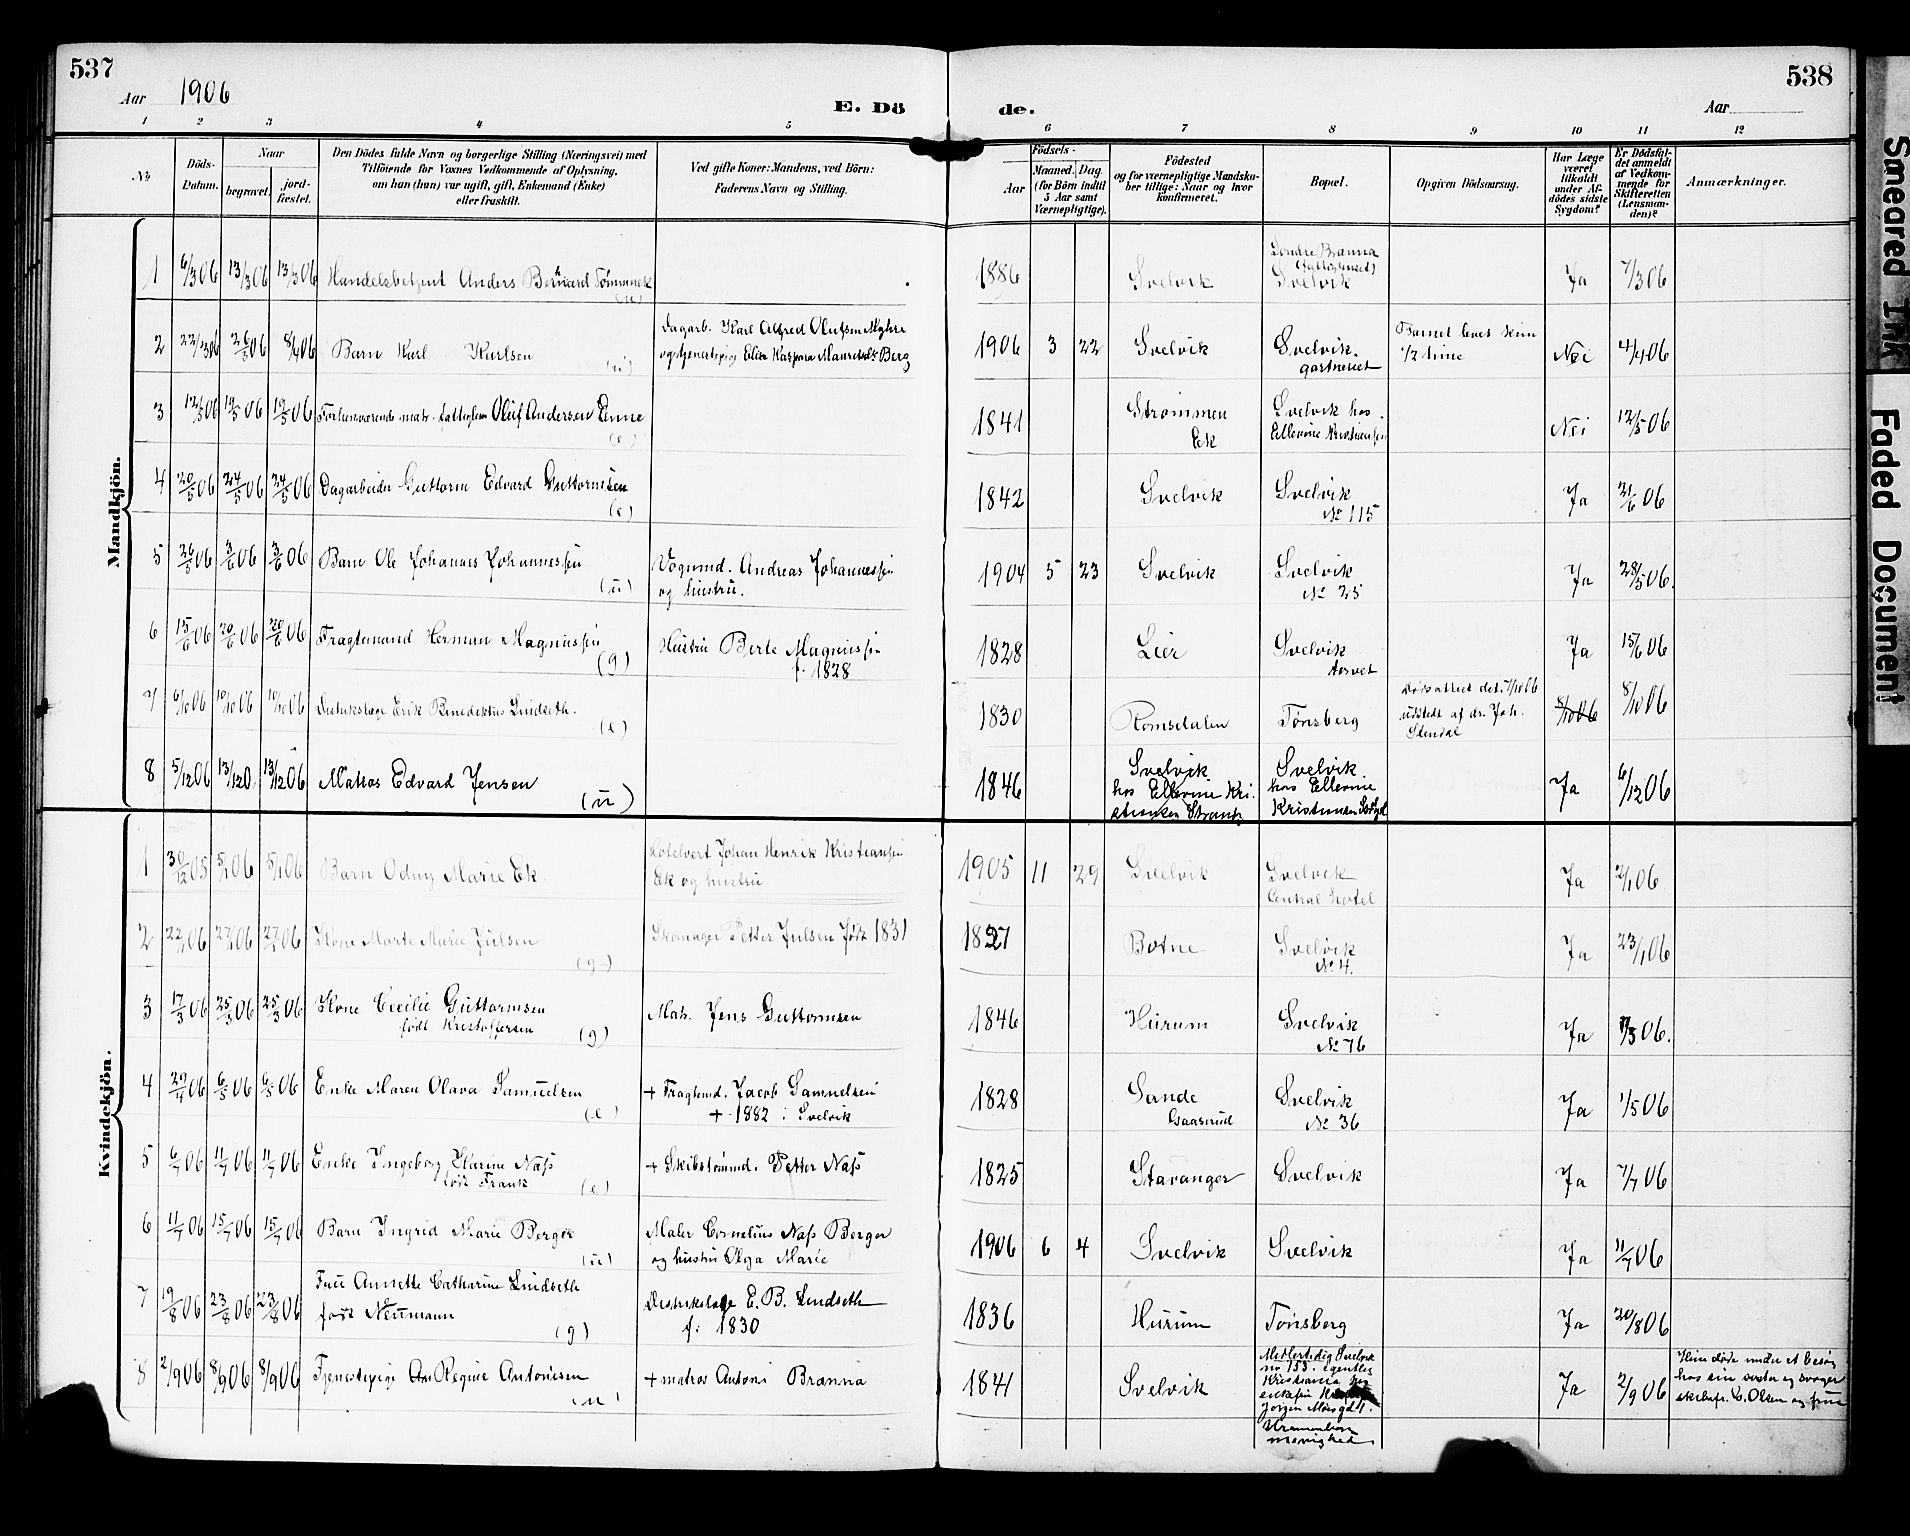 537
538
Aar 1906
E. Dö
de.
Aar
1 2 3 4 5 6 7 8 9 10 11 12
No.
Döds-
Datum.
Naar
begravet.
jord-
fæstet.
Den Dödes fulde Navn og borgerlige Stilling (Næringsvei) med
Tilföiende for Voxnes Vedkommende af Oplysning,
om han (hun) var ugift, gift, Enkemand (Enke)
eller fraskilt.
Ved gifte Koner: Mandens, ved Börn:
Faderens Navn og Stilling.
Födsels-
Aar
Maaned. Dag.
(for Börn indtil
5 Aar samt
Værnepligtige).
Födested
og for værnepligtige Mandska-
ber tillige: Naar og hvor
konfirmeret.
Bopæl.
Opgiven Dödsaarsag.
Har Læge
været
tilkaldt
under Af-
dödes sidste
Sygdom?
Er Dödsfal-
det anmeldt
af Vedkom-
mende for
Skifteretten
(Lensman-
den)?
Anmærkninger.
Mandkjön.
1 6/3 06 13/3 06 13/3 06 Handelsbetjent Anders Bernhard (u) 1886 Svelvik Söndre Brænna
Svelvik Ja 7/3 06
2 22/3 06 26/3 06 8/4 06 Barn Karl Karlsen (u) Dagarb. Karl Alfred Olufsen Myhre
og tjenestepig Elise Kaspara Berg 1906 3 22 Svelvik Svelvik
gartneriet Barnet levet kun
1/2 time Nei 4/4 06
3 12/5 06 19/5 06 19/5 06 Forhenværende matr. fattiglem Oluf Andersen Enne (e) 1841 Strømmen
Ek Svelvik hos
Ellevine Kristiansen Nei 12/5 06
4 20/5 06 24/5 06 24/5 06 Dagarbeider Guttorm Edvard Guttormsen (e) 1842 Svelvik Svelvik
No 115 Ja 21/6 06
5 26/5 06 3/6 06 3/6 06 Barn Ole Johannes Johannessen (u) Vognmd. Andreas Johannessen
og hustru. 1904 5 23 Svelvik Svelvik
No 25 Ja 28/5 06.
6 15/6 06 20/6 06 20/6 06 Fragtemand Herman Magnussen (g) Hustru Berte Magnussen
f. 1828 1828 Lier Svelvik
Aasvet Ja 15/6 06
7 6/10 06 10/10 06 10/10 06 Distriktslæge Erik Benediktus Lindseth. (e) 1830 Romsdalen Tönsberg Dödsattest dat. 7/10 06
udstedt af dr. Joh.
Stendal 8/10 06 8/10 06
8 5/12 06 13/12 0. 13/12 06 Matros Edvard Jensen (u) 1846 Svelvik
hos Ellevine Kri-
stiansen Svelvik.
hos Ellevine
Kristiansen Ja 6/12 06
Kvindekjön.
1 30/12 05 5/1 06 5/1 06 Barn Odny Marie Ek. Hotelvert Johan Henrik Kristiansen
Ek og hustru 1905 11 29 Svelvik Svelvik
Central hotel Ja 2/1 06
2 22/1 06 27/1 06 27/1 06 Kone Marte Marie Julsen (g) Skomager Petter Julsen født 1831 1827 Botne Svelvik
No 4. Ja 23/1 06
3 17/3 06 25/3 06 25/3 06 Kone Cecilie Guttormsen
født Kristoffersen (g) Matr. Jens Guttormsen 1846 Hurum Svelvik
No 76 Ja /3 06.
4 29/4 06 6/5 06 6/5 06 Enke Maren Olava Samuelsen (e) + Fragtemd. Jacob Samuelsen
+ 1882 i Svelvik 1828 Sande
Gaaserud Svelvik
No 36 Ja 1/5 06
5 6/7 06 11/7 06 11/7 06 Enke Ingeborg Karine Næss
født Frank (e) + Skibstømmd. Petter Næss 1825 Stavanger Svelvik Ja 7/7 06
6 11/7 06 15/7 06 15/7 06 Barn Ingrid Marie Berger (u) Maler Cornelius Næss Berger
og hustru Olga Marie 1906 6 4 Svelvik Svelvik Ja 11/7 06
7 19/8 06 23/8 06 23/8 06 Fru Annette Catharine Lindseth
født Neumann (g) Distriktslæge E. B. Lindseth
f. 1830 1836 Hurum Tönsberg Ja 20/8 06
8 2/9 06 8/9 06 8/9 06 Tjenestepige An Regine Antonisen (u) + matros Antoni Brænna 1841 Svelvik Midlertidig Svelvik
no 153. egentlig
Kristiania hos
enkefru
Jörgen Moesgd 1.
menighed Ja 2/9 06 Hun døde under et besøg
hos sin søster og svoger
skibsfr. C. Olsen og frue
Smeared Ink
Faded Document